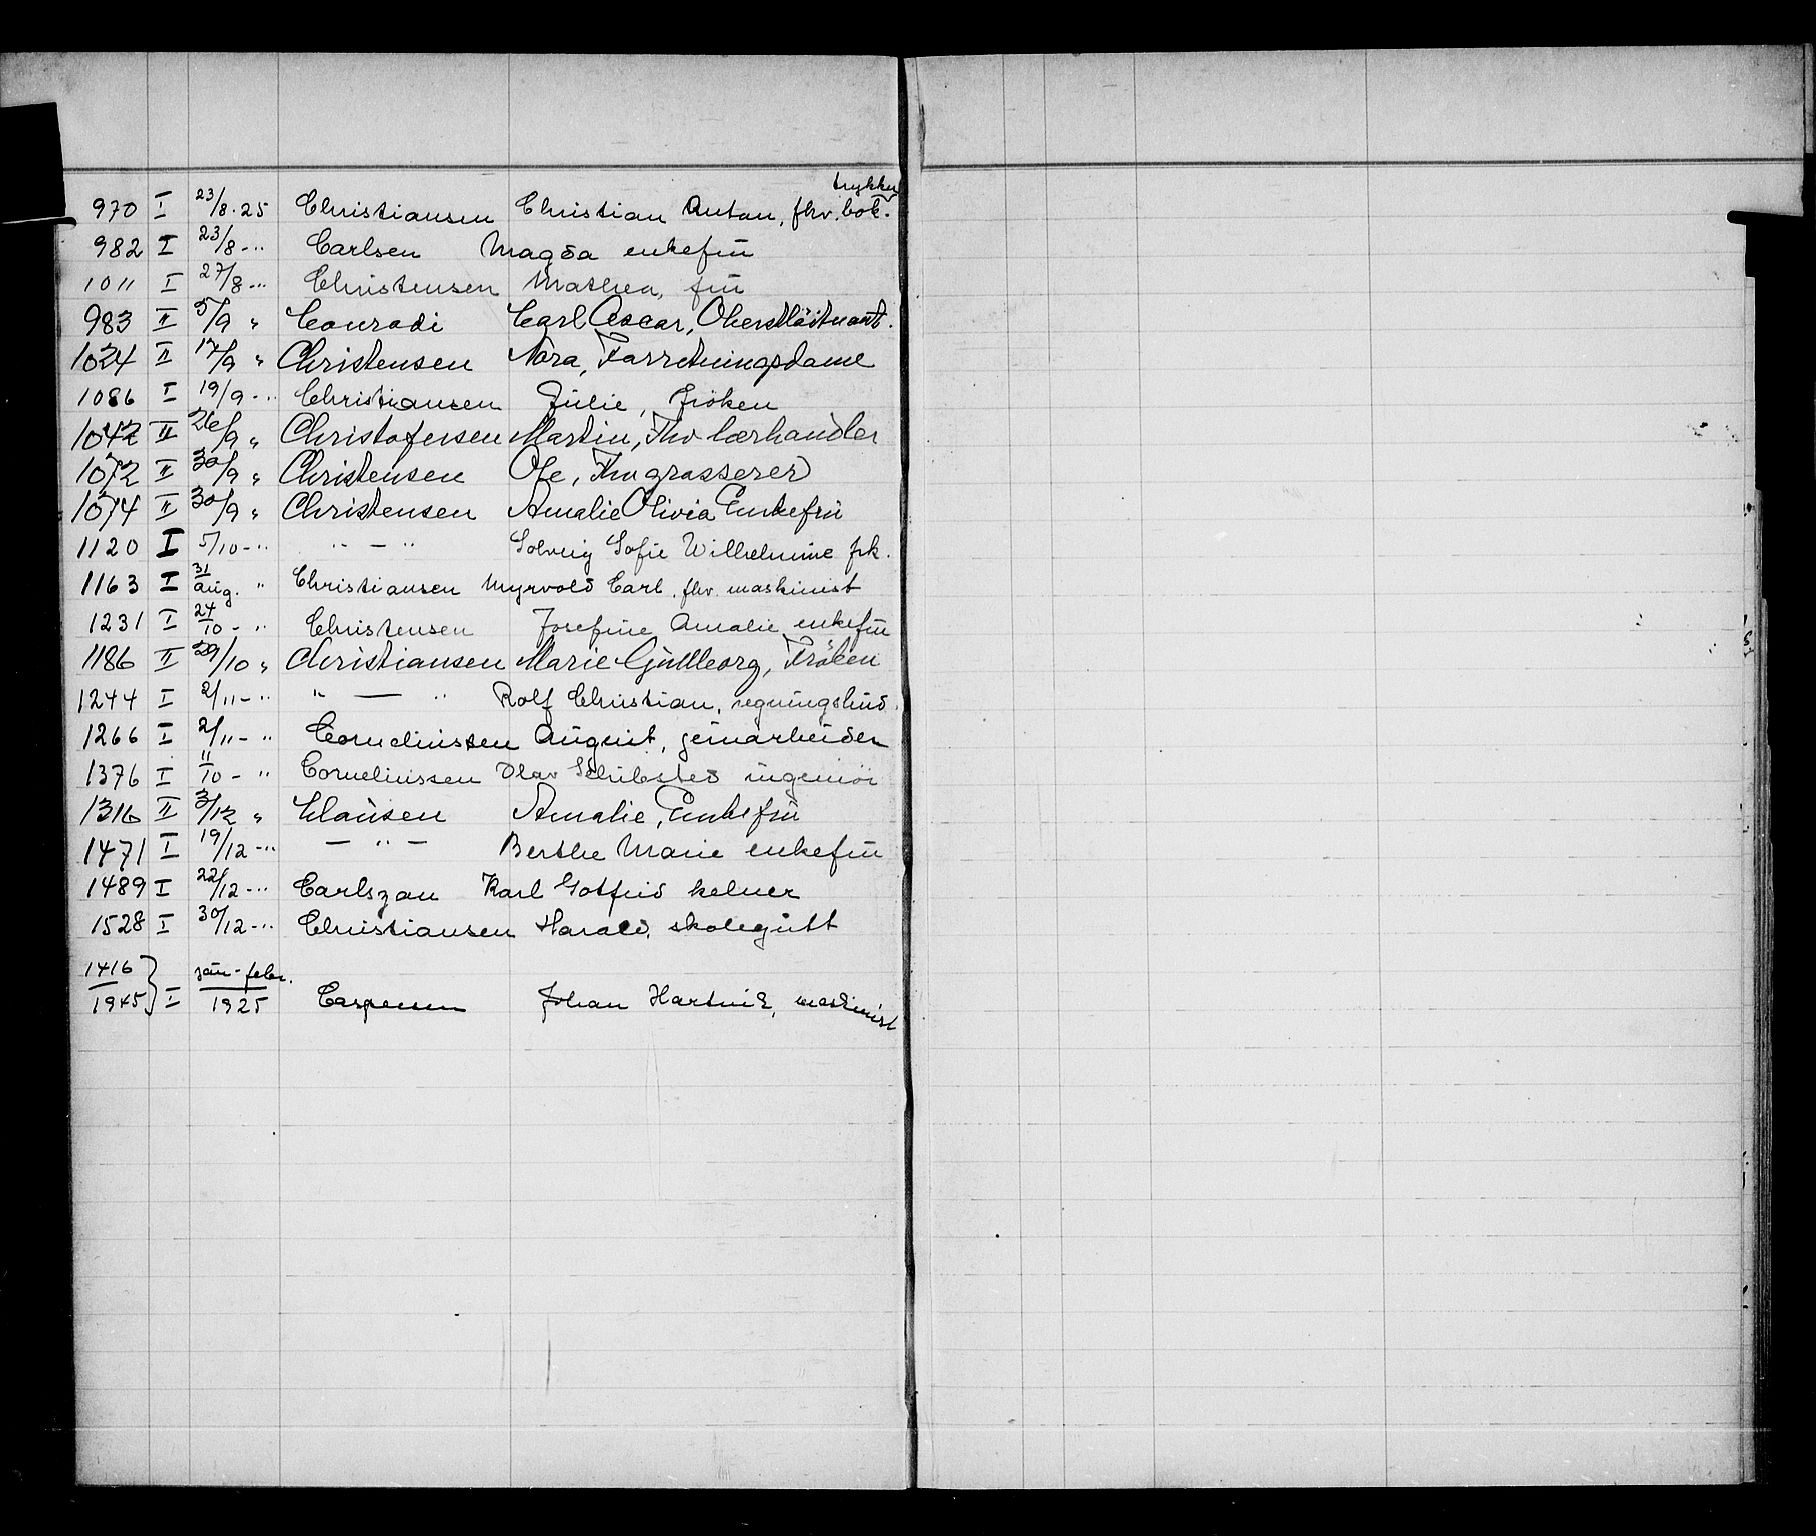 970 I 23/8.25 Christiansen Christian Anton, fhv. bok-trykker
982 I 23/8-" Carlsen Magda enkefru
1011 I 27/8-" Christensen Mathea, fru
983 II 5/9 " Conradi Carl Oscar, Oberstløitnant.
1024 II 17/9 " Christensen Nora, Forretningsdame
1086 I 19/9-" Christiansen Julie, frøken
1042 II 26/9 " Christofersen Martin, Fhv lærhandler
1072 II 30/9 " Christensen Ole, Fhv grosserer
1074 II 30/9 " Christensen Amalie Olivia Enkefru
1120 I 5/10-" " - " Solveig Sofie Wilhelmine frk.
1163 I 31/aug. " Christiansen Myrvold Carl, fhv. maskinist
1231 I 24/10-" Christensen Josefine Amalie enkefru
1186 II 29/10 " Christiansen Marie Gullborg, Frøken
1244 I 2/11-" " — " Rolf Christian, regningsbud.
1266 I 2/11-" Corneliussen August, jernarbeider
1376 I 11/10-" Corneliussen Olav Schibsted ingeniør
1316 II 3/12 " Clausen Amalie, Enkefru
1471 I 19/12-" - " - Berthe Marie enkefru
1489 I 22/12-" Carlszon Karl Gotfrid kelner
1528 I 30/12-" Christiansen Harald, skolegutt
1416/1945} I jan-febr./1925 Caspersen Johan Hartvik, maskinist